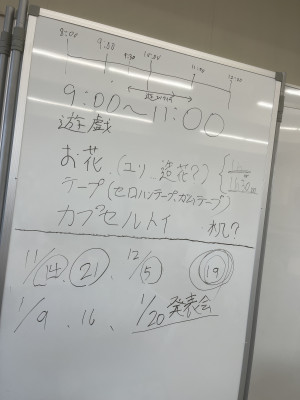 8:00 9:00 9:30 10:00 11:00 12:00
9:00〜11:00
遊戯
お花 (ユリ 造花?)
テープ(セロハンテープ、ガムテープ)
カプセルトイ 机?
11/14、21 12/5 19
1/9、16、1/20 発表会